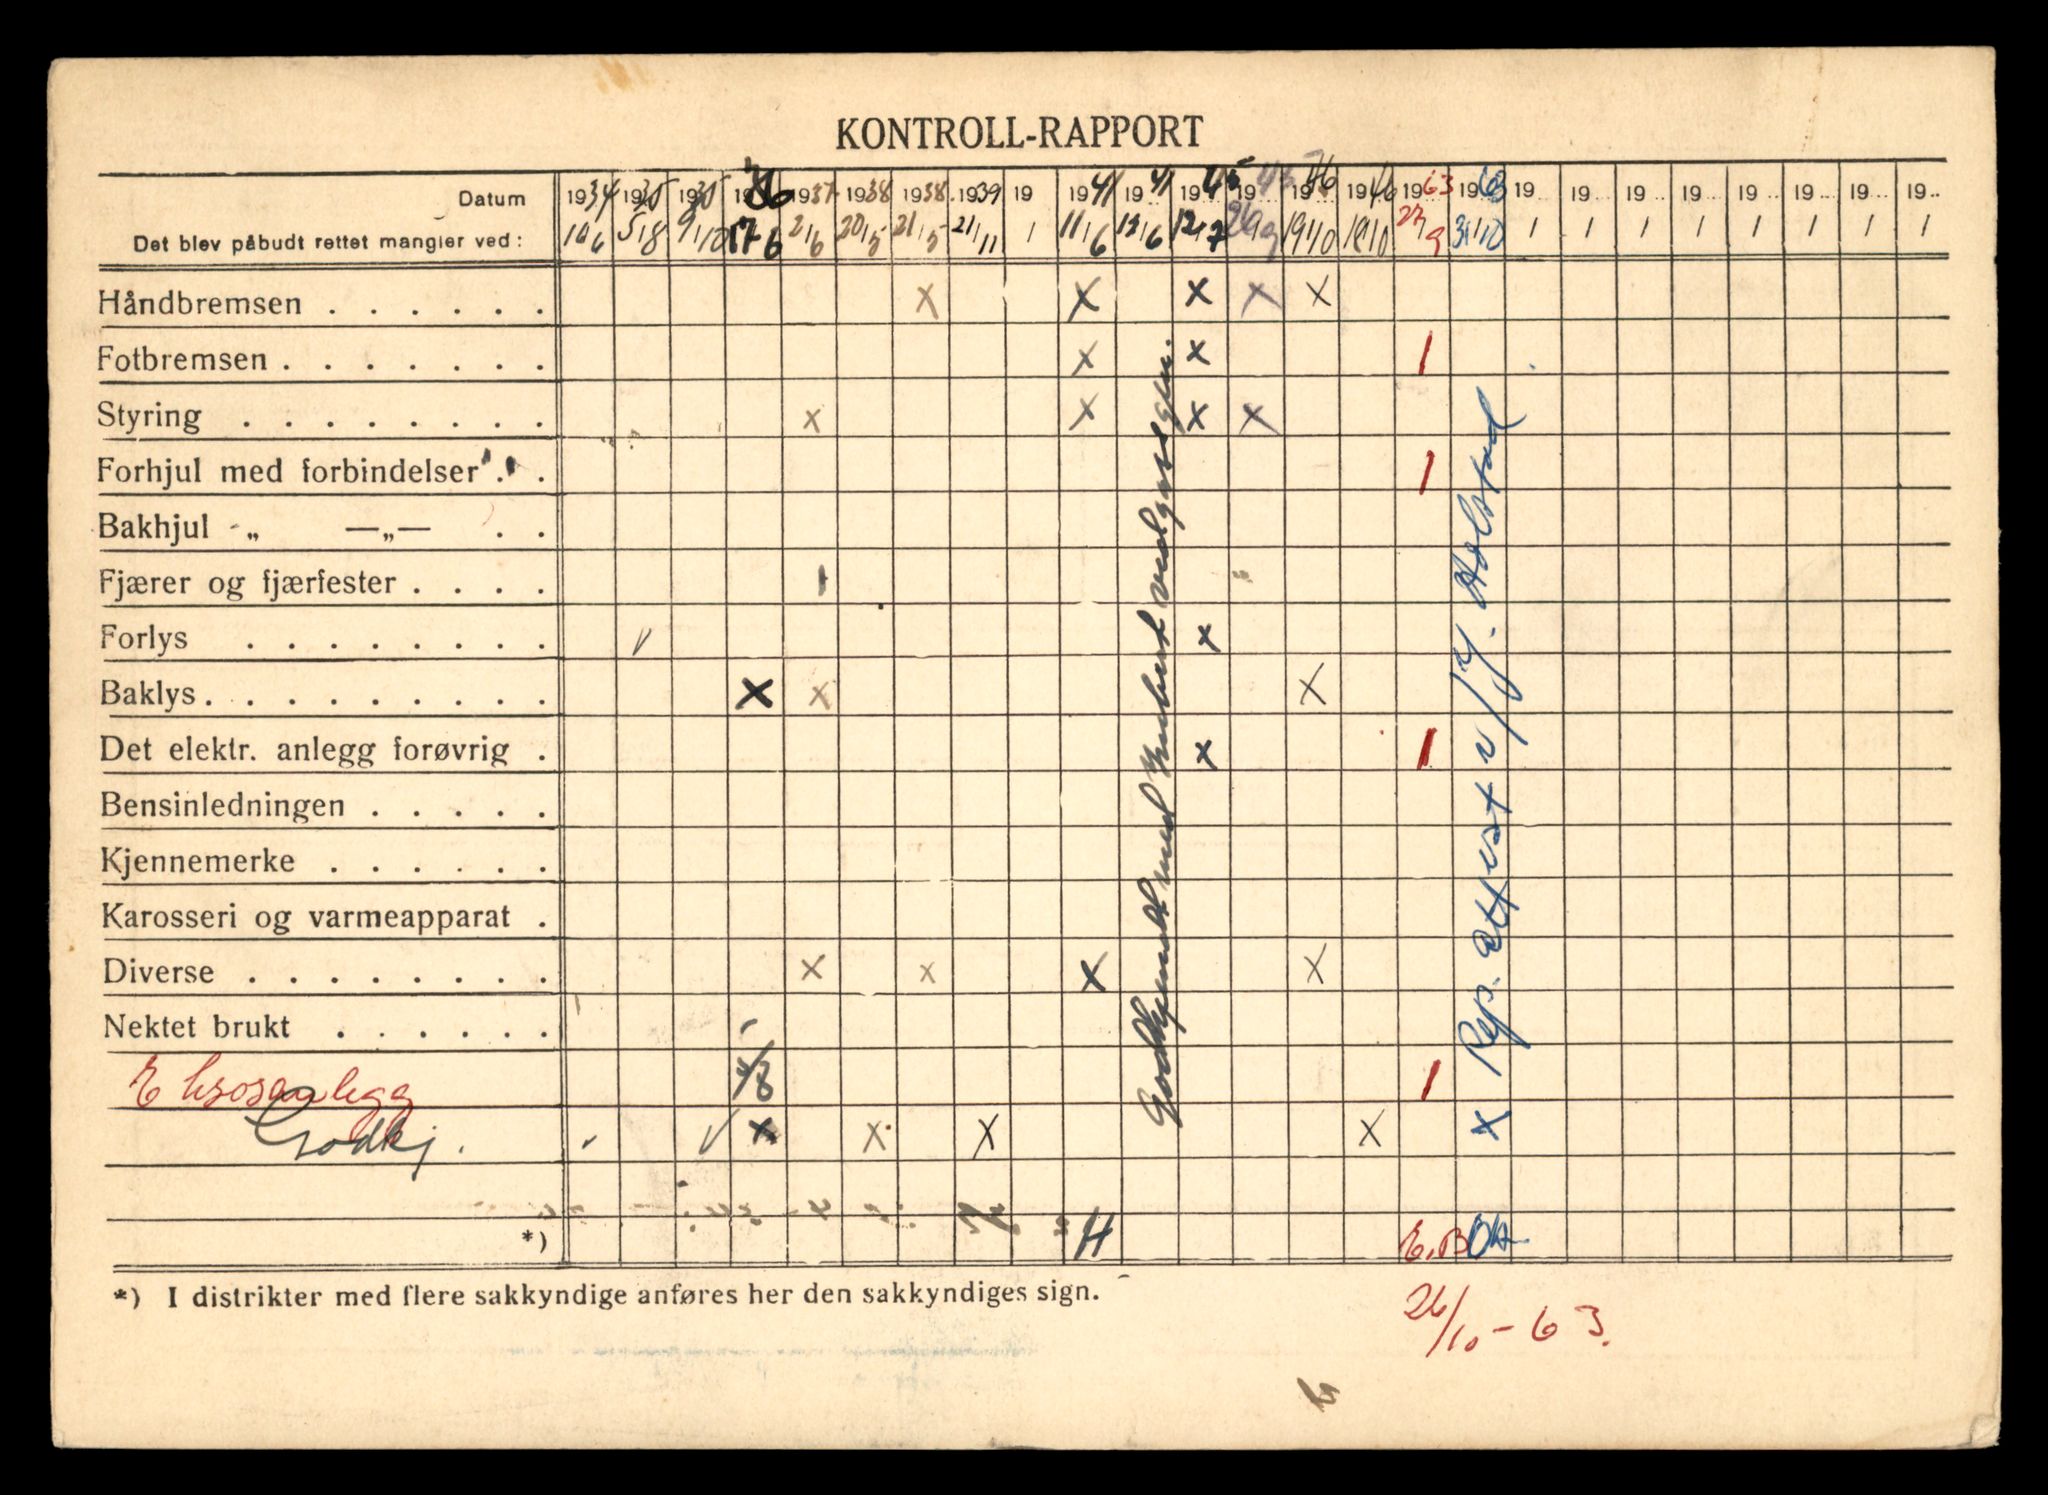 KONTROLL-RAPPORT
Datum 1934 1935 1935 1936 1937 1938 1938 1939 19 1941 1941 1945 1945 1946 1946 1963 1963 19 19 19 19 19 19 19 19
Det blev påbudt rettet mangler ved: 10/6 5/8 9/10 17/6 2/6 20/5 21/5 21/11 / 11/6 12/6 12/7 26/9 19/10 18/10 27/9 31/10 / / / / / / / /
Håndbremsen . . . . . . X X X X X
Fotbremsen . . . . . . . X X 1
Styring . . . . . . . . X X X X
Forhjul med forbindelser . . 1
Bakhjul „ —„— . .
Fjærer og fjærfester . . . . 1
Forlys . . . . . . . . V X
Baklys . . . . . . . . . X X X
Det elektr. anlegg forøvrig . X 1
Bensinledningen . . . . .
Kjennemerke . . . . . .
Karosseri og varmeapparat .
Diverse . . . . . . . . X X X X
Nektet brukt . . . . . .
4/8 1
Godkj. V V X X X X X
Godkjendt med
Rep. attest v/ J. Holstad
*) H E.B OH
*) I distrikter med flere sakkyndige anføres her den sakkyndiges sign.
26/10-63.